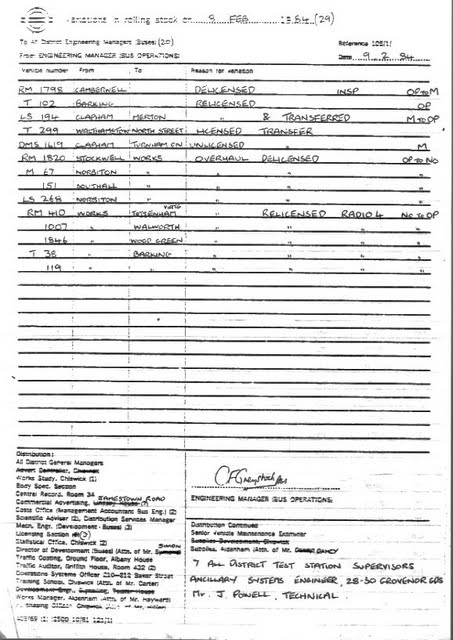 Variations in rolling stock on 8 FEB 1984 (29)
To All District Engineering Managers (Buses) (20)
Reference 105/1/
From ENGINEERING MANAGER (BUS OPERATIONS)
Date 9.2.84
Vehicle number From To Reason for variation
RM 1798 CAMBERWELL DELICENSED INSP OP TO M
T 102 BARKING RELICENSED OP
LS 194 CLAPHAM MERTON " & TRANSFERRED M TO OP
T 299 WALTHAMSTOW NORTH STREET LICENSED TRANSFER
DMS 1619 CLAPHAM TURNHAM GN UNLICENSED " M
RM 1820 STOCKWELL WORKS OVERHAUL DELICENSED OP TO NO
M 67 NORBITON " " " "
151 SOUTHALL " " " "
LS 268 NORBITON " " " "
RM 410 WORKS TOTTENHAM " RELICENSED RADIO 4 NO TO OP
1007 " WALWORTH " " " "
1846 " WOOD GREEN " " " "
T 38 " BARKING " " " "
119 " " " " " "
Distribution:
All District General Managers
Advert Controller, Chiswick
Works Study, Chiswick (1)
Body Spec. Section
Central Record, Room 34
JAMESTOWN ROAD
Commercial Advertising,
Costs Office (Management Accountant Bus Eng.) (2)
Scientific Adviser (2), Distribution Services Manager
Mech. Engr. (Development - Buses) (3)
Licensing Section
Statistical Office, Chiswick (2)
SIMON
Director of Development (Buses) (Attn. of Mr.
Traffic Costing, Ground Floor, Albany House
Traffic Auditor, Griffith House, Room 432 (2)
Operations Systems Officer 210-212 Baker Street
Training School, Chiswick (Attn. of Mr. Carter)
Works Manager, Aldenham (Attn. of Mr. Hayworth
ENGINEERING MANAGER (BUS OPERATIONS)
Distribution Continued
Senior Vehicle Maintenance Examiner
Supplies, Aldenham (Attn. of Mr. DANCY)
7 ALL DISTRICT TEST STATION SUPERVISORS
ANCILLARY SYSTEMS ENGINEER, 28-30 GROVENOR GDS
MR. J. POWELL, TECHNICAL